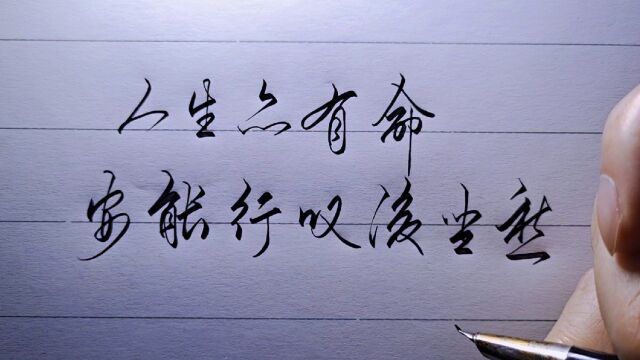 人生亦有命
安能行叹復坐愁